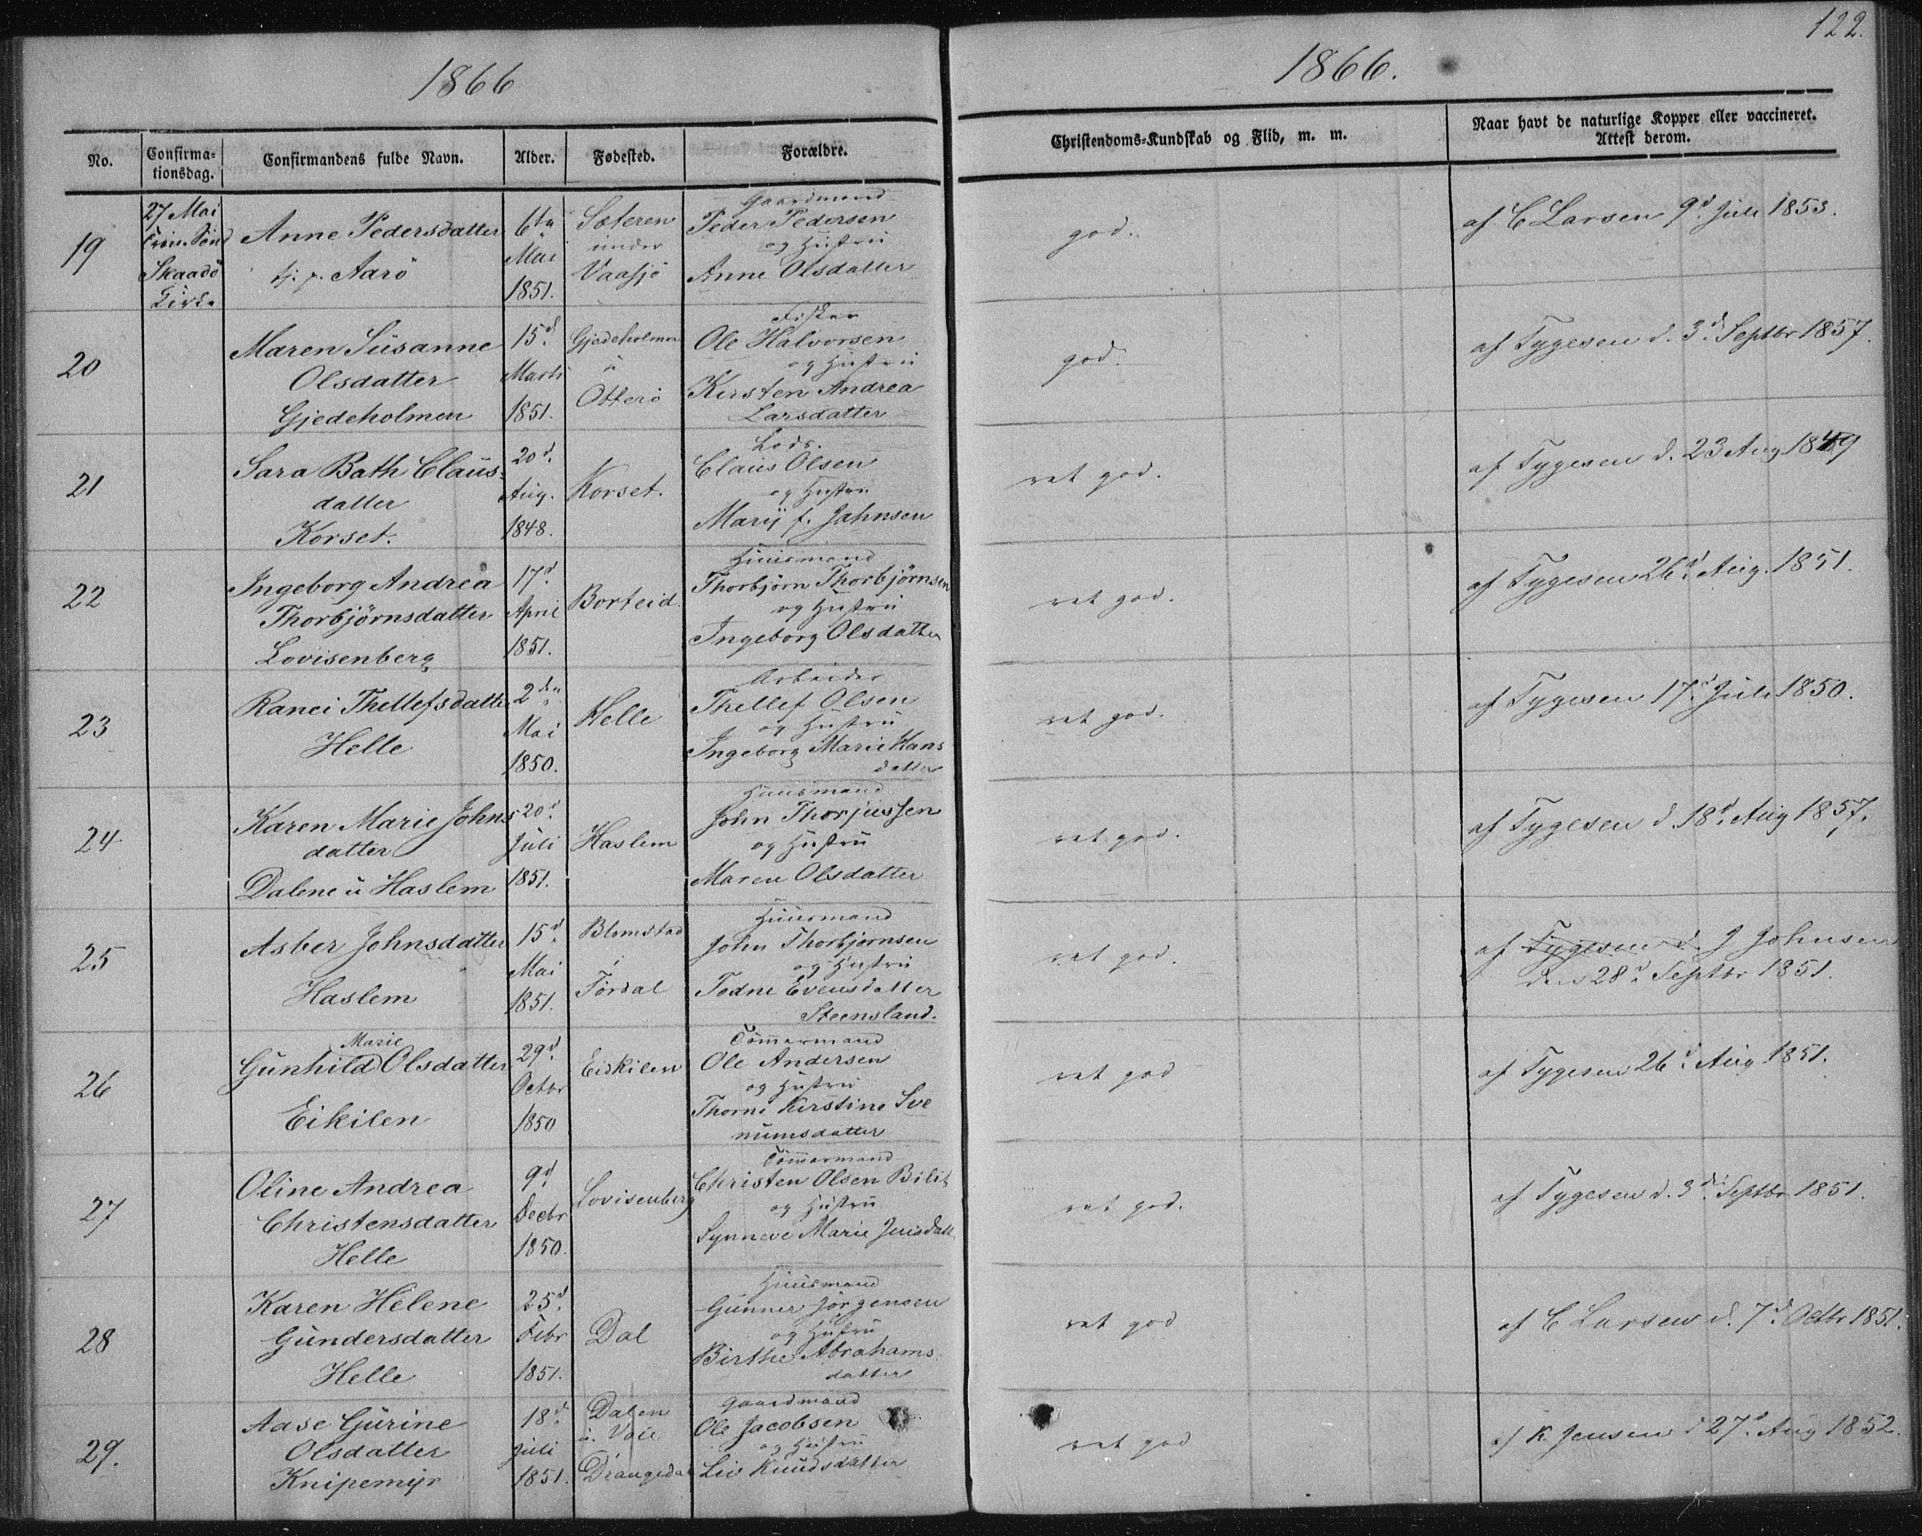 122.
1866
1866.
No.
Confirma-
tionsdag.
Confirmandens fulde Navn.
Alder.
Fødested.
Forældre.
Christendoms-Kundskab og Flid, m. m.
Naar havt de naturlige Kopper eller vaccineret.
Attest derom.
19
27 Mai
Skaadö
Kirke
Anne Pedersdatter
tj. p. Aarö
6te
Mai
1851.
Sæteren
under
Vaasjö
Gaardmand
Peder Pedersen
og Hustru
Anne Olsdatter
god.
af C Larsen 9d Juli 1853.
20
Maren Susanne
Olsdatter
Gjedeholmen
15d.
Marts
1851.
Gjedeholmen
u
Otterö
Fisker
Ole Halvorsen
og Hustru
Kirsten Andrea
Larsdatter
god.
af Tygesen d. 3d Septbr 1857.
21
Sara Bath Claus-
datter
Korset.
20d.
Aug.
1848.
Korset.
Lods.
Claus Olsen
og Hustru
Marij f. Jahnsen
ret god.
af Tygesen d. 23 Aug 1849
22
Ingeborg Andrea
Thorbjörnsdatter
Lovisenberg
17d.
April
1851.
Borteid.
Huusmand
Thorbjörn Thorbjørnsen
og Hustru
Ingeborg Olsdatter
ret god.
af Tygesen 26d. Aug. 1851.
23
Ranei Thellefsdatter
Helle
2den
Mai
1850.
Helle
Arbeider
Thellef Olsen
og Hustru
Ingeborg Marie Hans
datter
ret god.
af Tygesen 17d Juli 1850.
24
Karen Marie Johns
datter
Dalene u Haslem
20d.
Juli
1851.
Haslem
Huusmand
John Thorjussen
og Hustru
Maren Olsdatter
ret god.
af Tygesen d. 18d. Aug 1857.
25
Asber Johnsdatter
Haslem
15d.
Mai
1851.
Blomstad
i
Tørdal
Huusmand
John Thorbjørnsen
og Hustru
Todne Evensdatter
Steensland.
ret god.
af Tygesen d. J Johnsen
den 28d. Septbr 1851.
26
Marie
Gunhild Olsdatter
Eikilen
29d.
Octbr
1850
Eidkilen
Tömmermand
Ole Andersen
og Hustru
Thorne Kirstine Sve
numsdatter
ret god
af Tygesen 26d. Aug 1851.
27
Oline Andrea
Christensdatter
Helle
9d.
Decbr
1850.
Lovisenberg
Tömmermand
Christen Olsen Bilit
og Hustru
Synneve Marie Jensdatt
ret god.
af Tygesen d. 3die Septbr 1851.
28
Karen Helene
Gundersdatter
Helle
25d.
Febr
1851.
Dal
Huusmand
Gunner Jörgensen
og Hustru
Birthe Abrahams
datter
ret god
af C Larsen d. 7d. Octbr 1851.
29.
Aase Gurine
Olsdatter
Knipemyr
18d.
Juli
1851.
Dalen
u. Voie
Drangedal
Gaardmand
Ole Jacobsen
og Hustru
Liv Knudsdatter
ret god
af K Jensen d 27d. Aug 1852.